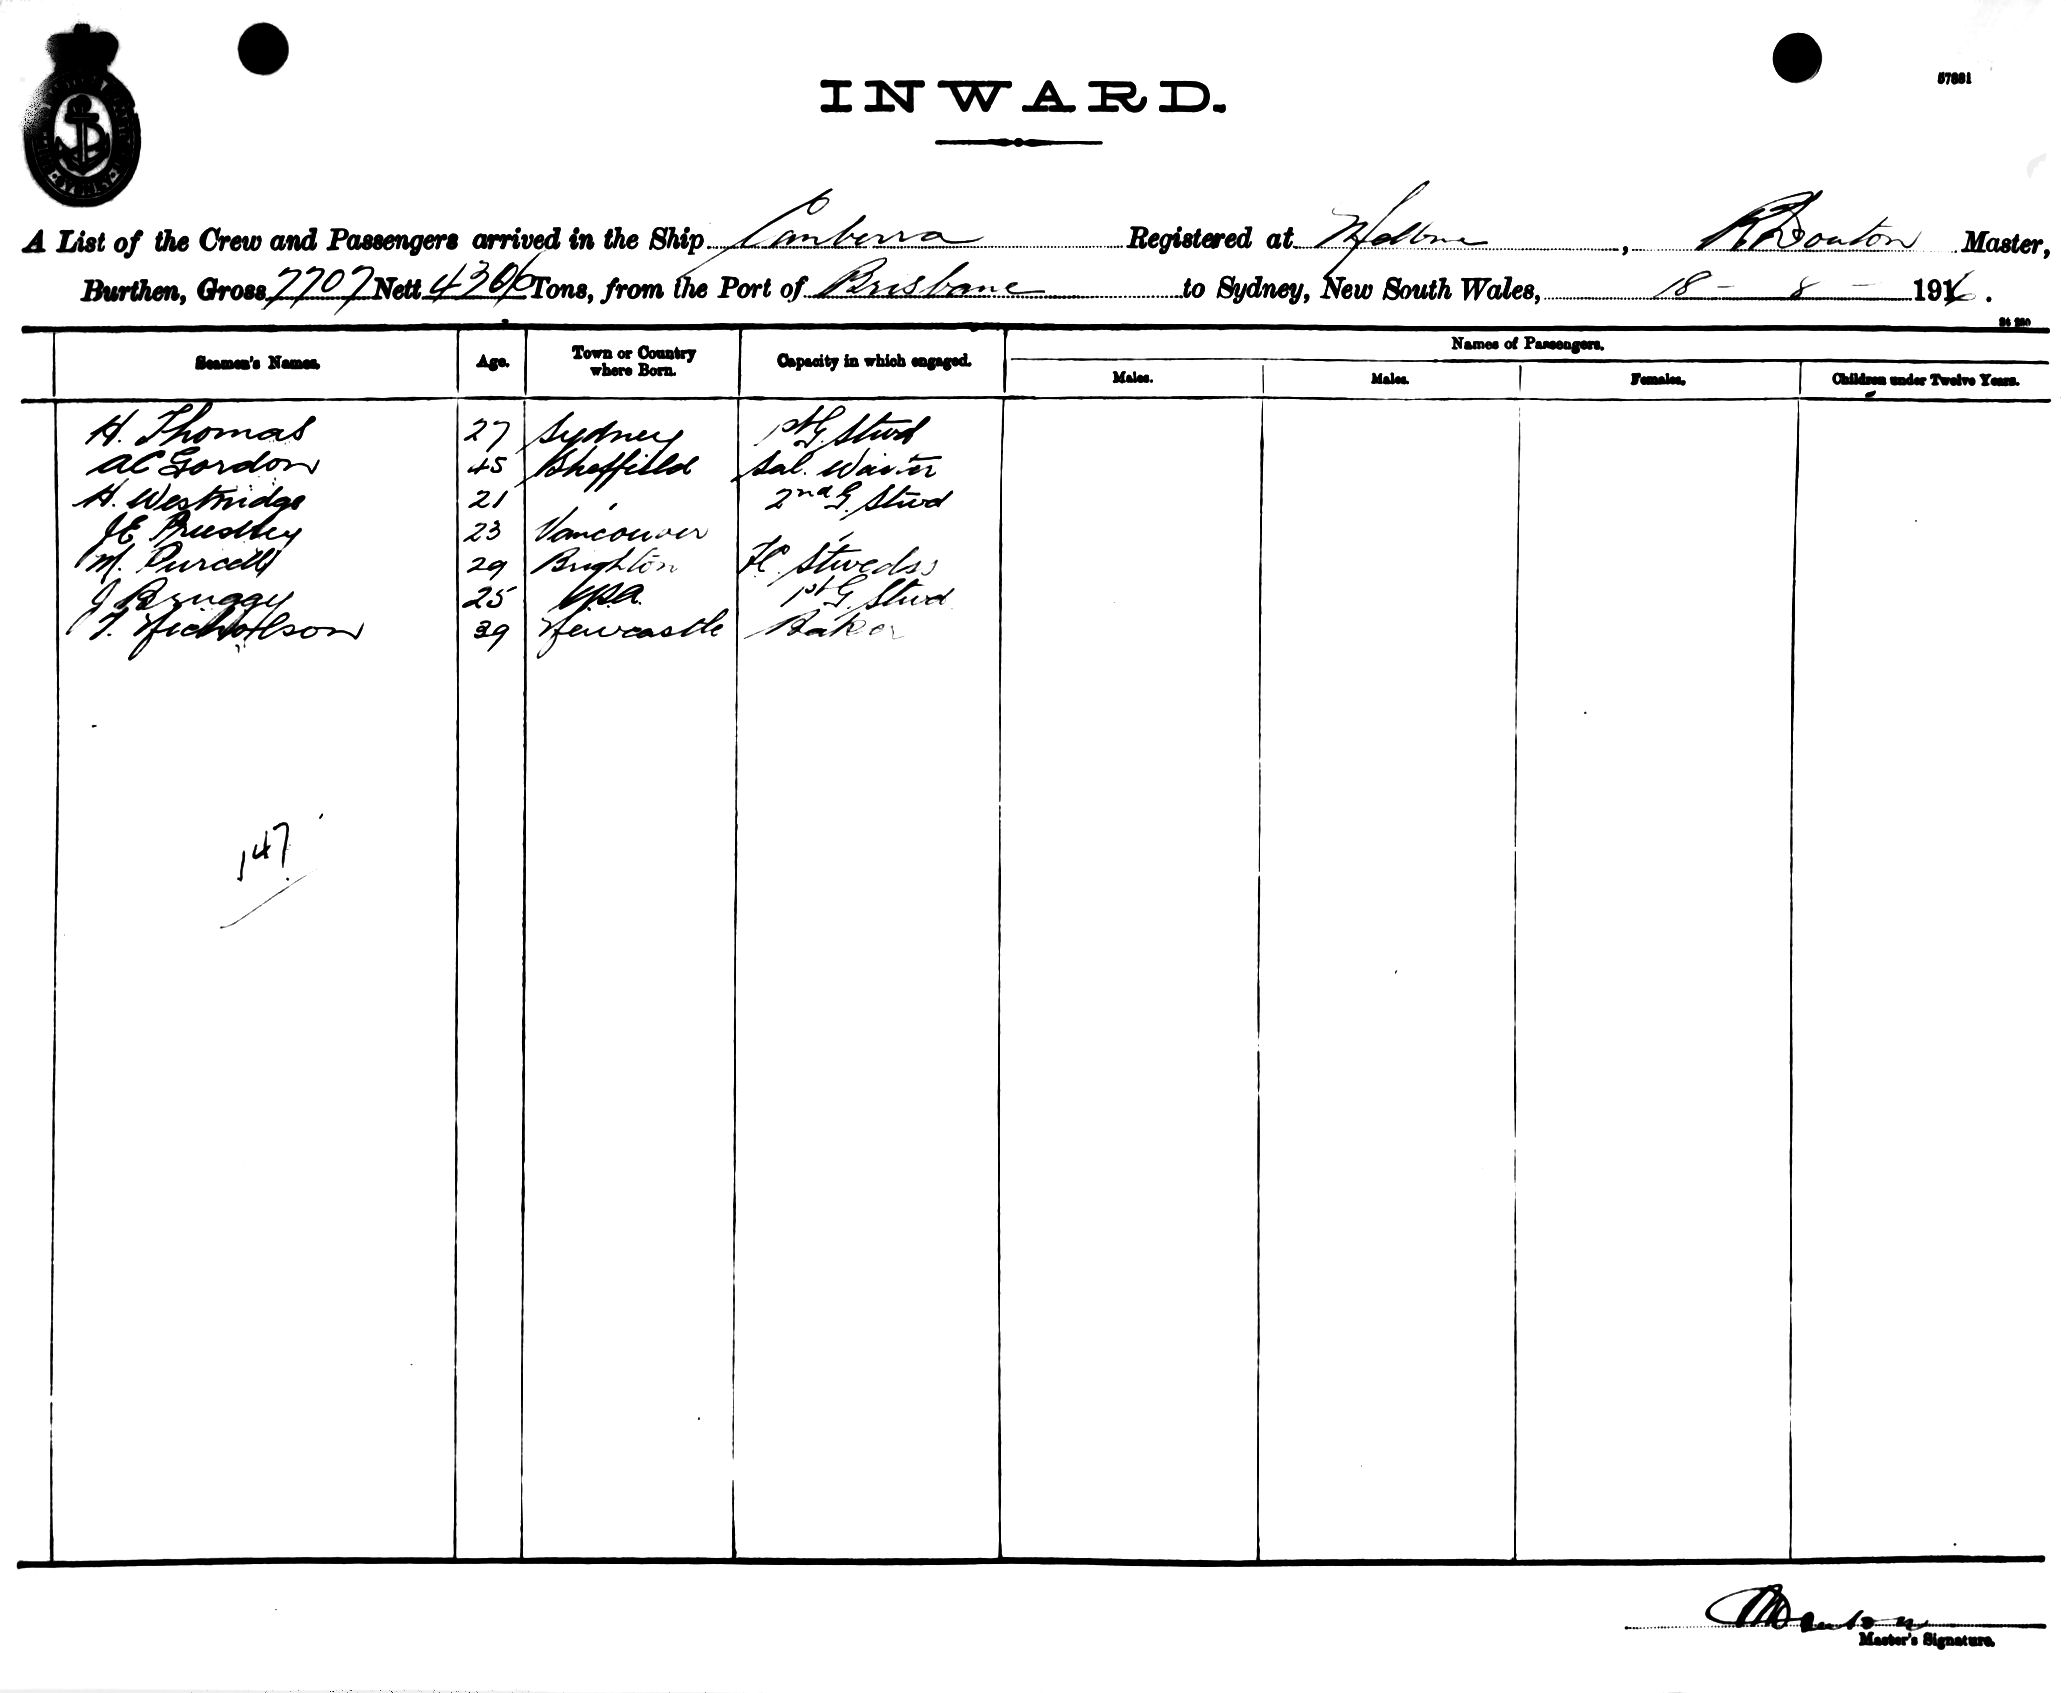 57881
INWARD.
A List of the Crew and Passengers arrived in the Ship Canberra Registered at Melbne, Master,
Burthen, Gross 7707 Nett 4306 Tons, from the Port of Brisbane to Sydney, New South Wales, 18 - 8 - 191
Names of Passengers.
Seamen's Names. Age. Town or Country where Born. Capacity in which engaged. Males. Males. Females. Children under Twelve Years.
H. Thomas 27 Sydney 1st G Stwd
AC Gordon 45 Sheffield Sal. Waiter
H. Westridge 21 " 2nd G. Stwd
JE Priestley 23 Vancouver "
M. Purcell 29 Brighton Stwedss
J Bruggy 25 USA 1st G. Stwd
Nicholson 39 Newcastle Baker
147
Master's Signature.
SYDNEY